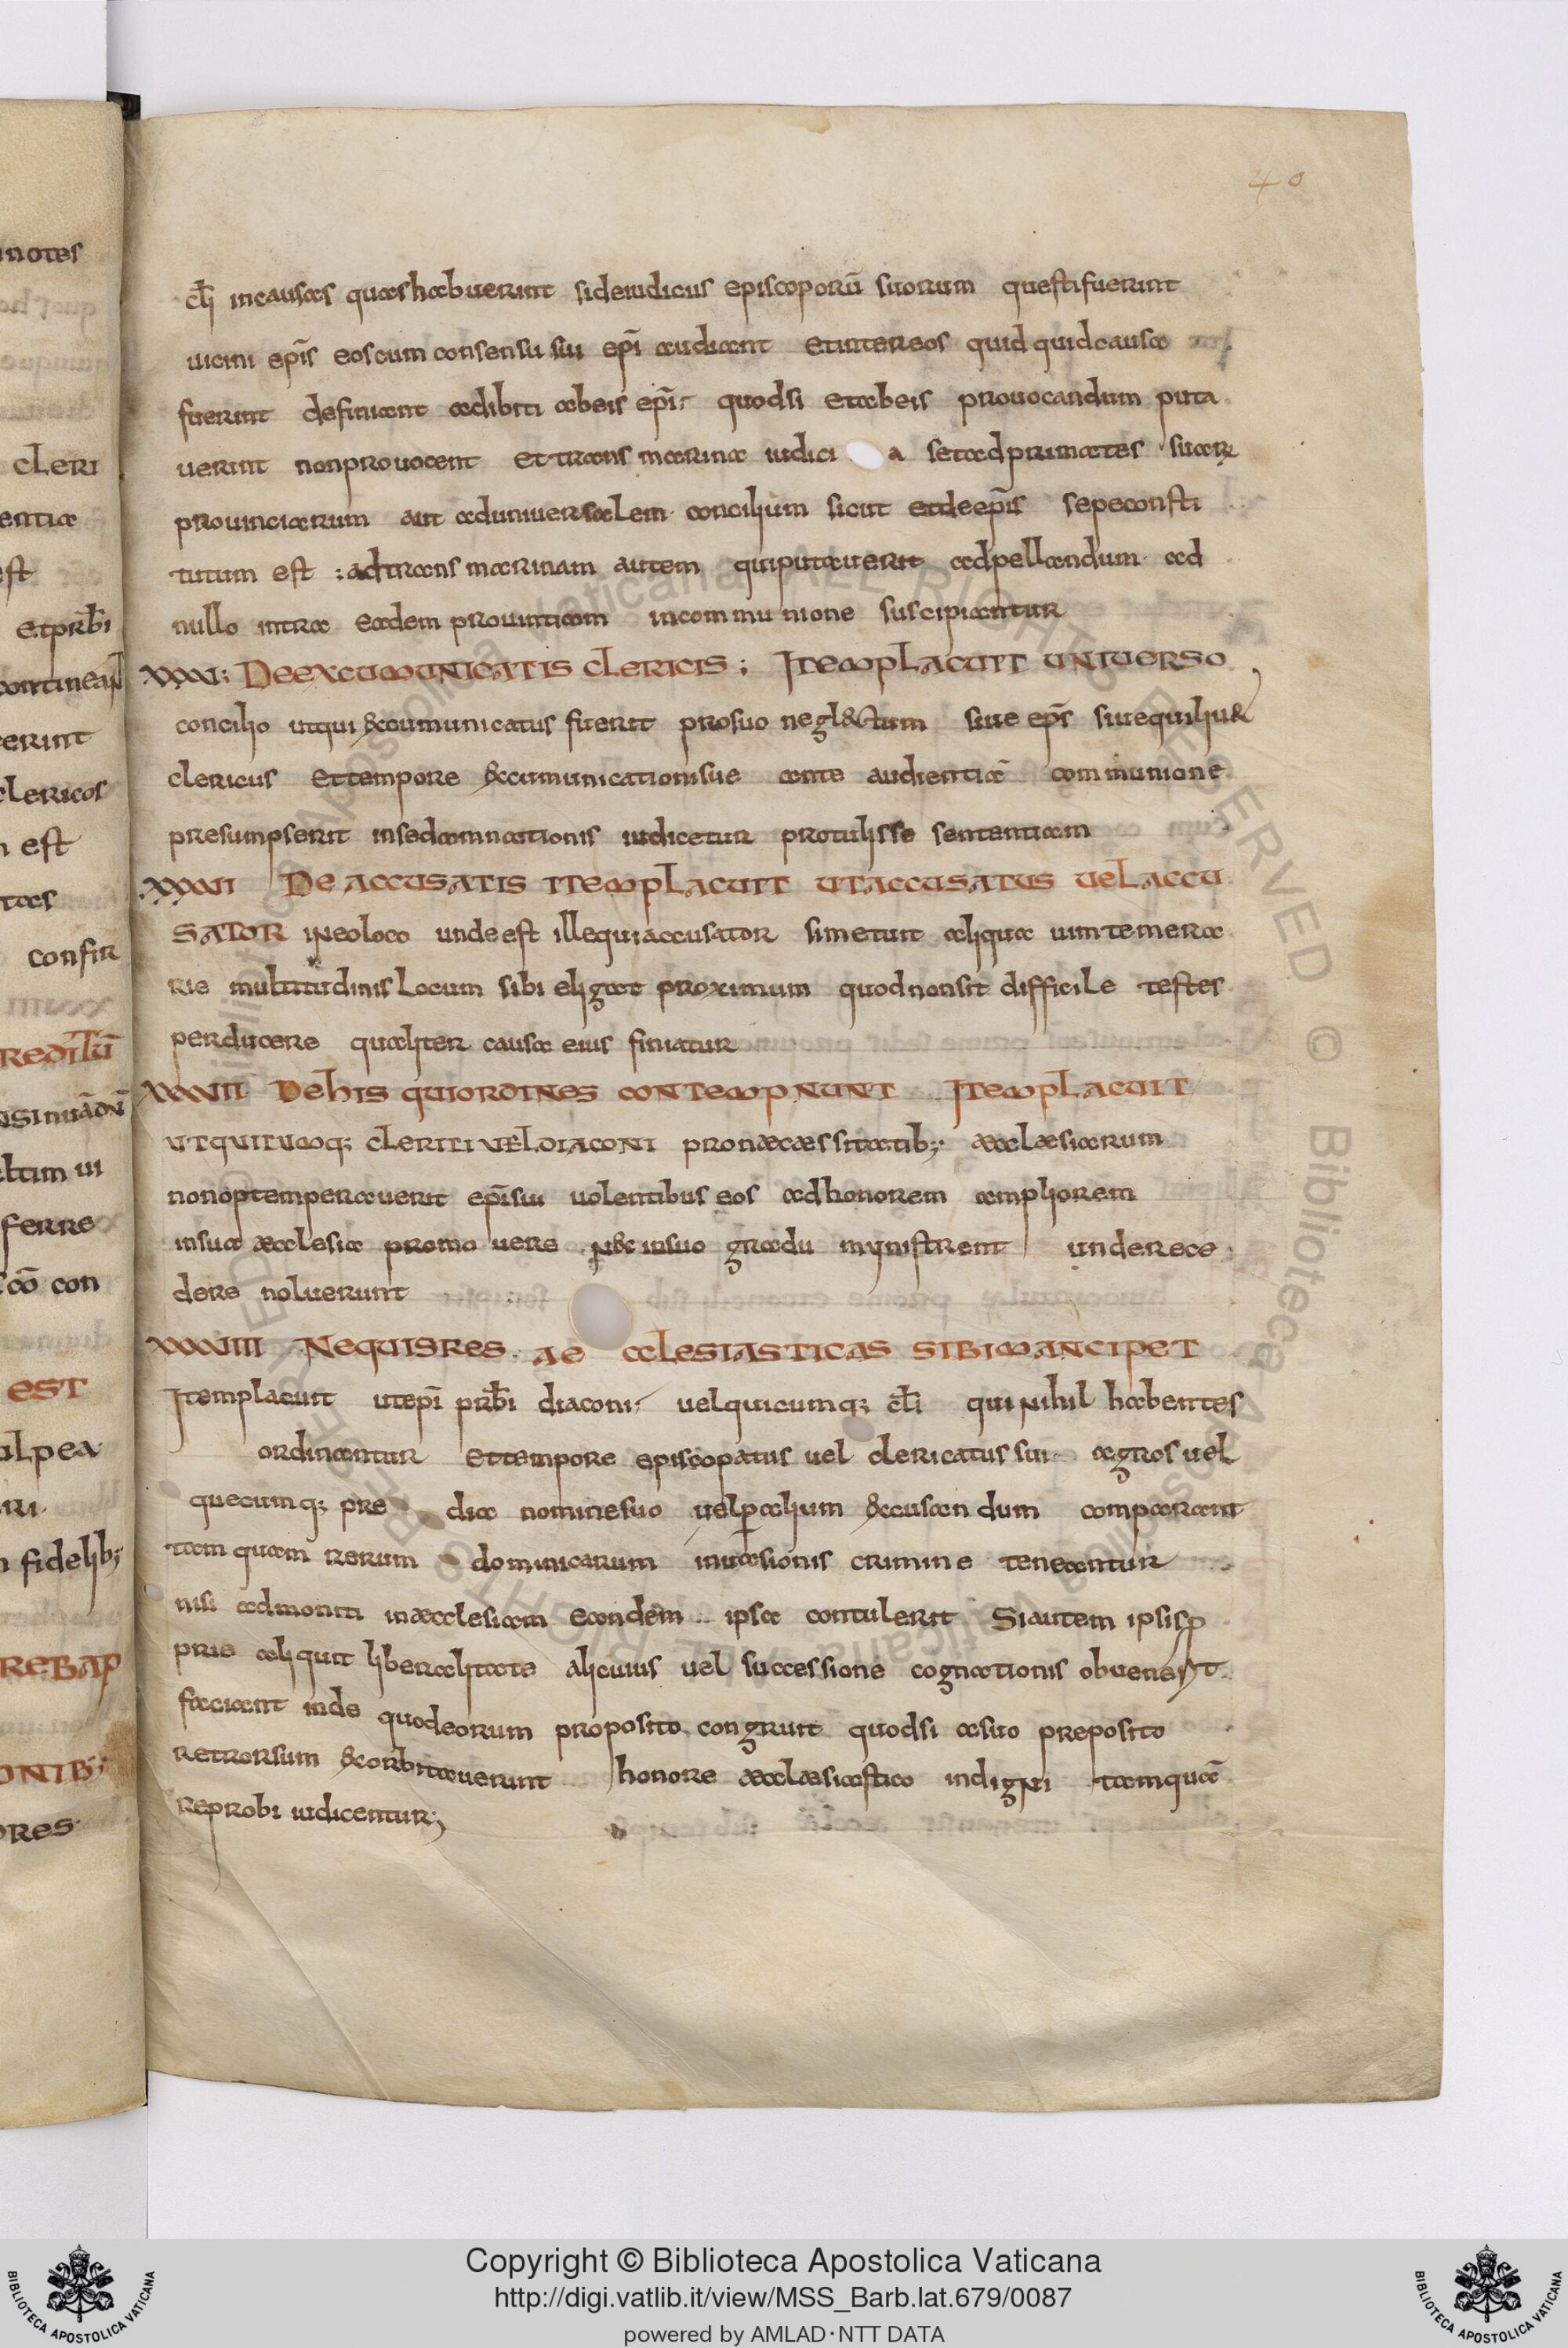 40
cl̄i incausas quas habuerint sideiudicus episcoporū suorum questi fuerint
uicini ep̄is eos cum consensu sui ep̄i audiant et inter eos quid quid causa
fuerint definiant adibiti ab eis ep̄i quodsi et ab eis prouocandum puta
uerint non prouocent et trans marina iudici a set ad primates suar
prouinciarum aut ad uniuersalem concilium sicut et de ep̄is sepe consti
tutum est ; ad trans marinam autem qui putauerit adpellandum ad
nullo intra eadem prouintiam in communione suscipiantur
XXXI; De excumunicatis clericis ; Item placuit uniuerso
concilio ut qui excumunicatus fuerit pro suo neglectum siue ep̄s siue quilibet
clericus et tempore excumunicationis sue ante audientiā communione
presumpserit in se damnationis iudicetur protulisse sententiam
XXXII De accusatis item placuit ut accusatus uel accu
sator in eo loco unde est ille qui accusator si metuit aliqua uim temera
rie multitudinis locum sibi eligat proximum quod non sit difficile testes
perducere qualiter causa eius finiatur
XXXIII De his qui ordines contempnunt Item placuit
ut quicumq; clerici vel diaconi pro næcæssitatib; æcclæsiarum
non optemperauerit ep̄i sui uolentibus eos ad honorem ampliorem
in sua æcclesia promo uere nec in suo gradu mynistrent unde rece
dere noluerunt
XXXIIII Ne quis res ae cclesiasticas sibi mancipet
Item placuit ut ep̄i prb̄i diaconi uel quicumq; cl̄i qui nihil habentes
ordinantur et tempore episcopatus uel clericatus sui agros uel
quecumq; pre dia nomine suo uel p alium excusan dum comparant
tam quam rerum dominicarum inuasionis crimine teneantur
nisi admoniti in æcclesiam eandem ipsa contulerit Si autem ipsis p
prie aliquit liberalitate alicuius uel successione cognationis obuenerit
faciant inde quod eorum proposito congruit quodsi a suo preposito
retrorsum exorbitauerunt honore æcclæsiastico indigni tamquā
reprobi iudicentur;
Copyright © Biblioteca Apostolica Vaticana
http://digi.vatlib.it/view/MSS_Barb.lat.679/0087
powered by AMLAD·NTT DATA